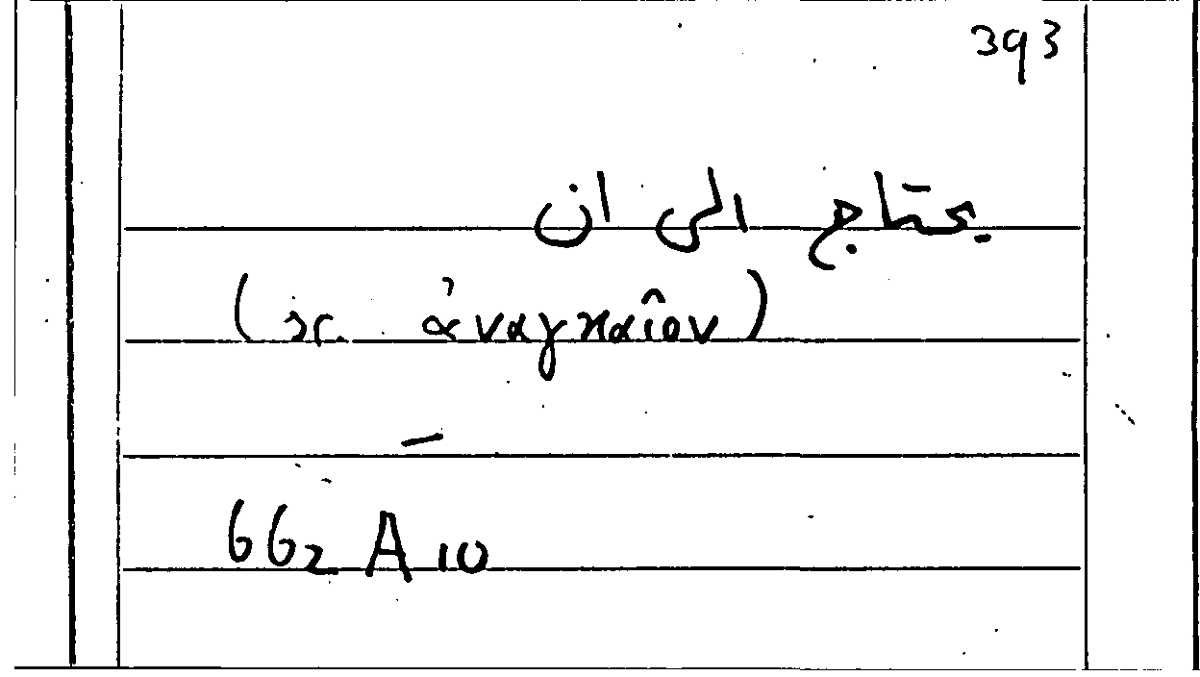 393
يحتاج الى ان
(sc. ἀναγκαῖον)
—
662 A 10